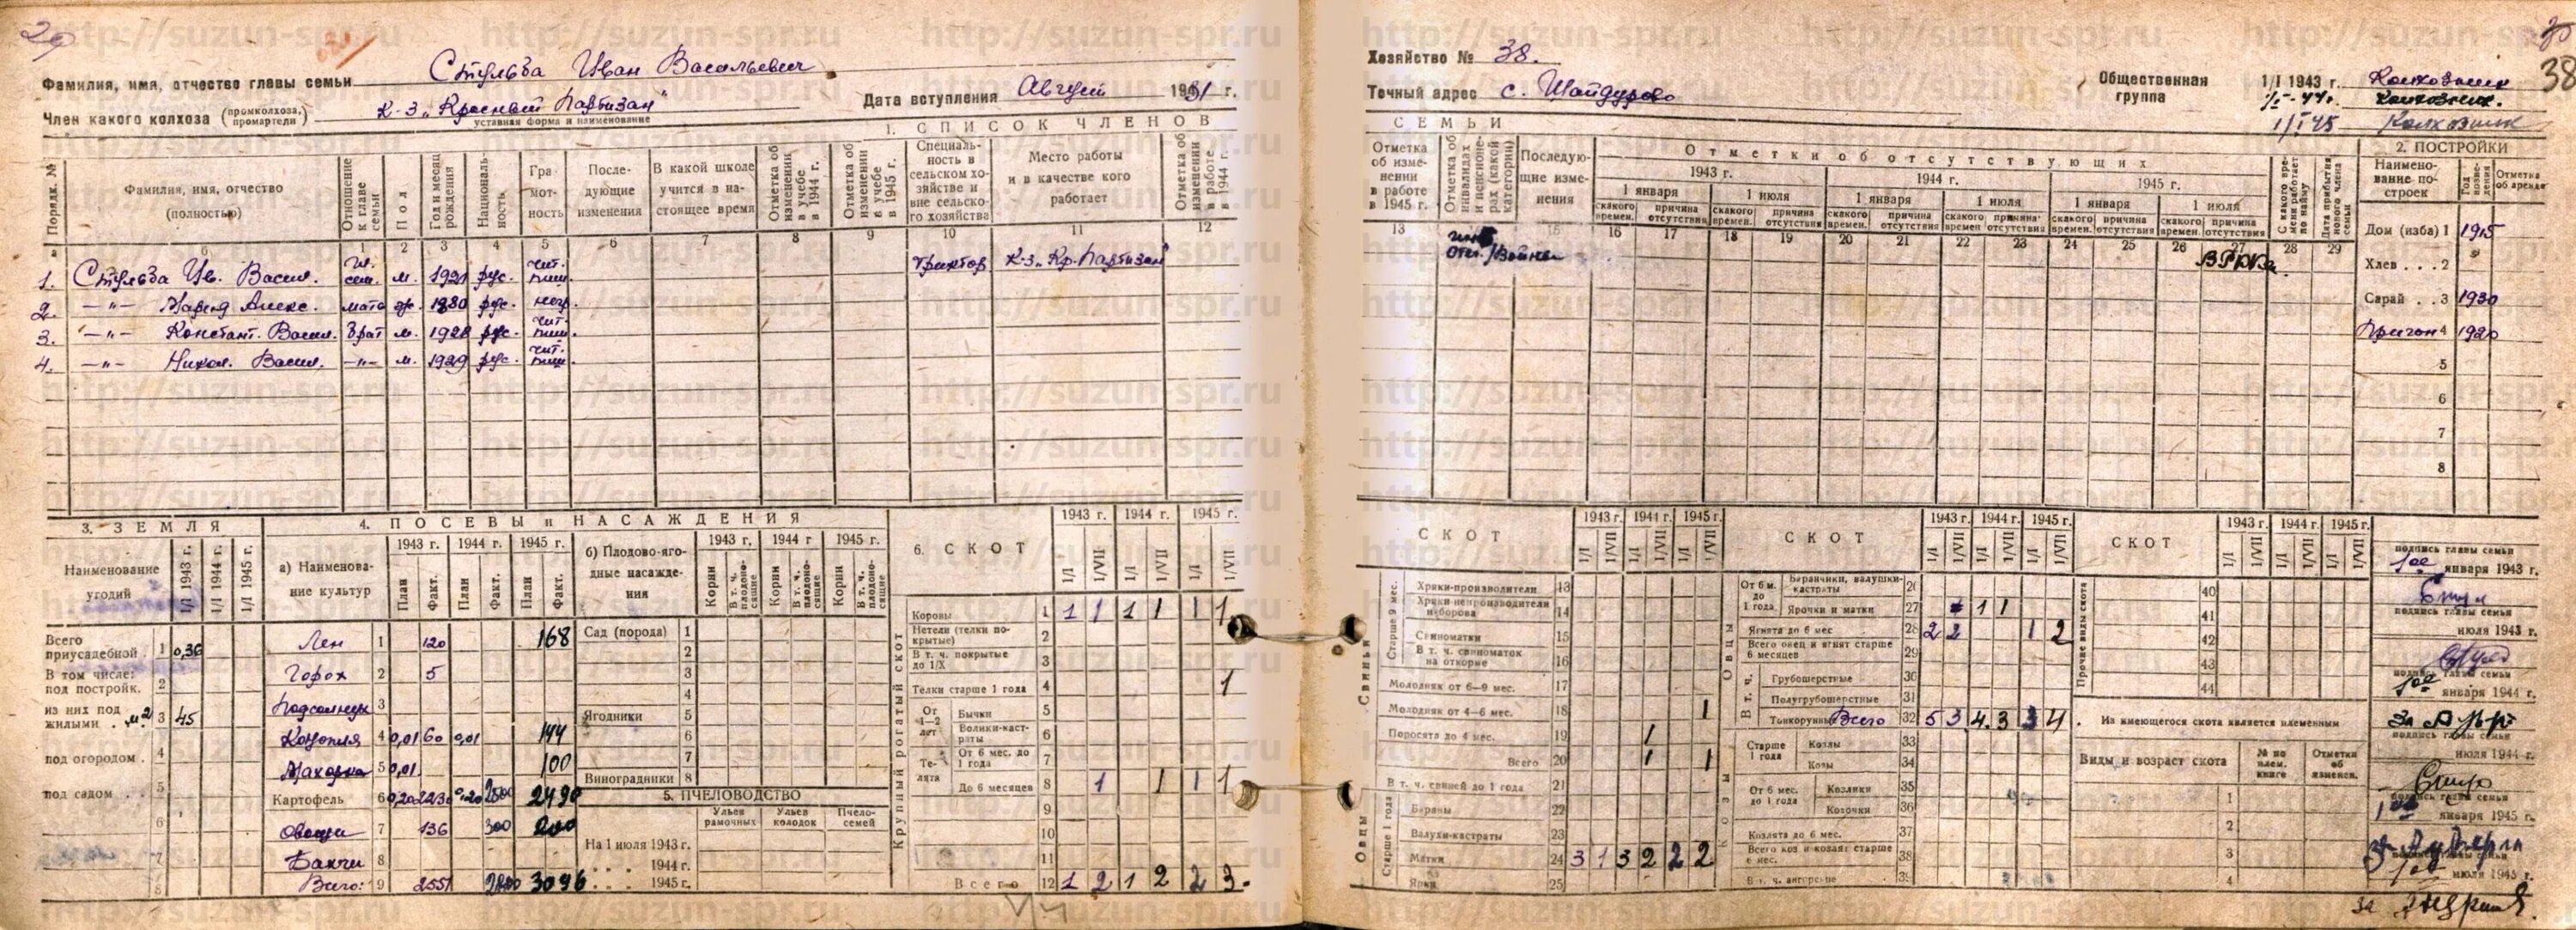 29
Фамилия, имя, отчество главы семьи Стульба Иван Васильевич
Член какого колхоза (промколхоза, промартели) К-з „Красный Партизан"
уставная форма и наименование
Дата вступления Август 1931 г.
Хозяйство № 38.
Точный адрес с. Шайдурово
Общественная группа
1/I 1943 г. Колхозник
1/I-44г. Колхозник.
1/I 45 Колхозник
38
1. СПИСОК ЧЛЕНОВ СЕМЬИ
Порядк. №
Фамилия, имя, отчество (полностью)
Отношение к главе семьи
Пол
Год и месяц рождения
Национальность
Грамотность
Последующие изменения
В какой школе учится в настоящее время
Отметка об изменении в учебе в 1944 г.
Отметка об изменении в учебе в 1945 г.
Специальность в сельском хозяйстве и вне сельского хозяйства
Место работы и в качестве кого работает
Отметка об изменении в работе в 1944 г.
Отметка об изменении в работе в 1945 г.
Отметка об инвалидах и пенсионерах (какой категории)
Последующие изменения
Отметки об отсутствующих
1943 г. 1944 г. 1945 г.
1 января 1 июля 1 января 1 июля 1 января 1 июля
с какого времен. причина отсутствия с какого времен. причина отсутствия с какого времен. причина отсутствия с какого времен. причина отсутствия с какого времен. причина отсутствия с какого времен. причина отсутствия
С какого времени работает по найму
Дата прибытия нового члена семьи
1 2 3 4 5 6 7 8 9 10 11 12 13 15 16 17 18 19 20 21 22 23 24 25 26 27 28 29
1. Стульба Ив. Васил. гл. сем. м. 1921 рус. чит. пиш. трактор. К-з „Кр. Партизан" Отеч. Войны
2. —"— Мария Алекс. мать ж. 1880 рус. негр.
3. —"— Констант. Васил. брат м. 1928 рус. чит. пиш.
4. —"— Никол. Васил. —"— м. 1929 рус. чит. пиш.
2. ПОСТРОЙКИ
Наименование построек
Год возведения
Отметка об аренде
Дом (изба) 1 1915
Хлев . . . 2
Сарай . . 3 1930
Пригон 4 1920
5
6
7
8
3. ЗЕМЛЯ
Наименование угодий
1/I 1943 г. 1/I 1944 г. 1/I 1945 г.
Всего приусадебной . 1 0,36
В том числе: под постройк. 2
из них под жилыми . м² 3 45
под огородом . 4
под садом . . 5
6
7
8
4. ПОСЕВЫ и НАСАЖДЕНИЯ
а) Наименование культур
1943 г. 1944 г. 1945 г.
План Факт. План Факт. План Факт.
Лен 1 120 168
Горох 2 5
Подсолнух 3
Конопля 4 0,01 60 0,01 144
Махорка 5 0,01 100
Картофель 6 0,20 2230 0,20 2500 2490
Овощи 7 136 300 200
Бахчи 8
Всего: 9 2551 2800 3096
б) Плодово-ягодные насаждения
1943 г. 1944 г 1945 г.
Корни В т. ч. плодоносящие Корни В т. ч. плодоносящие Корни В т. ч. плодоносящие
Сад (порода) 1
2
3
4
Ягодники 5
6
7
Виноградники 8
5. ПЧЕЛОВОДСТВО
Ульев рамочных Ульев колодок Пчелосемей
На 1 июля 1943 г.
1944 г.
1945 г.
6. СКОТ
1943 г. 1944 г. 1945 г.
1/I 1/VII 1/I 1/VII 1/I 1/VII
Крупный рогатый скот
Коровы 1 1 1 1 1 1 1
Нетели (телки покрытые) 2
В т. ч. покрытые до 1/X 3
Телки старше 1 года 4 1
От 1—2 лет
Бычки 5
Волики-кастраты 6
Телята
От 6 мес. до 1 года 7
До 6 месяцев 8 1 1 1 1
9
10
11
Всего 12 1 2 1 2 2 3
СКОТ
1943 г. 1944 г. 1945 г.
1/I 1/VII 1/I 1/VII 1/I 1/VII
Свиньи
Старше 9 мес.
Хряки-производители 13
Хряки-непроизводители и борова 14
Свиноматки 15
В т. ч. свиноматок на откорме 16
Молодняк от 6—9 мес. 17
Молодняк от 4—6 мес. 18 1
Поросята до 4 мес. 19 1
Всего 20 1 1
В т. ч. свиней до 1 года 21
Овцы
Старше 1 года
Бараны 22
Валухи-кастраты 23
Матки 24 3 1 3 2 2 2
Ярки 25
СКОТ
1943 г. 1944 г. 1945 г.
1/I 1/VII 1/I 1/VII 1/I 1/VII
Овцы
От 6 м. до 1 года
Баранчики, валушки-кастраты 26
Ярочки и матки 27 1 1
Ягнята до 6 мес 28 2 2 1 2
Всего овец и ягнят старше 6 месяцев 29
В т. ч.
Грубошерстные 30
Полугрубошерстные 31
Тонкорунны Всего 32 5 3 4 3 3 4
Козы
Старше 1 года
Козлы 33
Козы 34
От 6 мес. до 1 года
Козлики 35
Козочки 36
Козлята до 6 мес. 37
Всего коз и козлят старше 6 мес. 38
В т. ч. ангорские 39
СКОТ
1943 г. 1944 г. 1945 г.
1/I 1/VII 1/I 1/VII 1/I 1/VII
Прочие виды скота
40
41
42
43
44
Из имеющегося скота является племенным
Виды и возраст скота
№ по плем. книге
Отметки об изменен.
1
2
3
4
подпись главы семьи
1ое января 1943 г.
подпись главы семьи
июля 1943 г.
подпись главы семьи
1ое января 1944 г.
подпись главы семьи
июля 1944 г.
подпись главы семьи
1ое января 1945 г.
подпись главы семьи
1ое июля 1945 г.
http://suzun-spr.ru